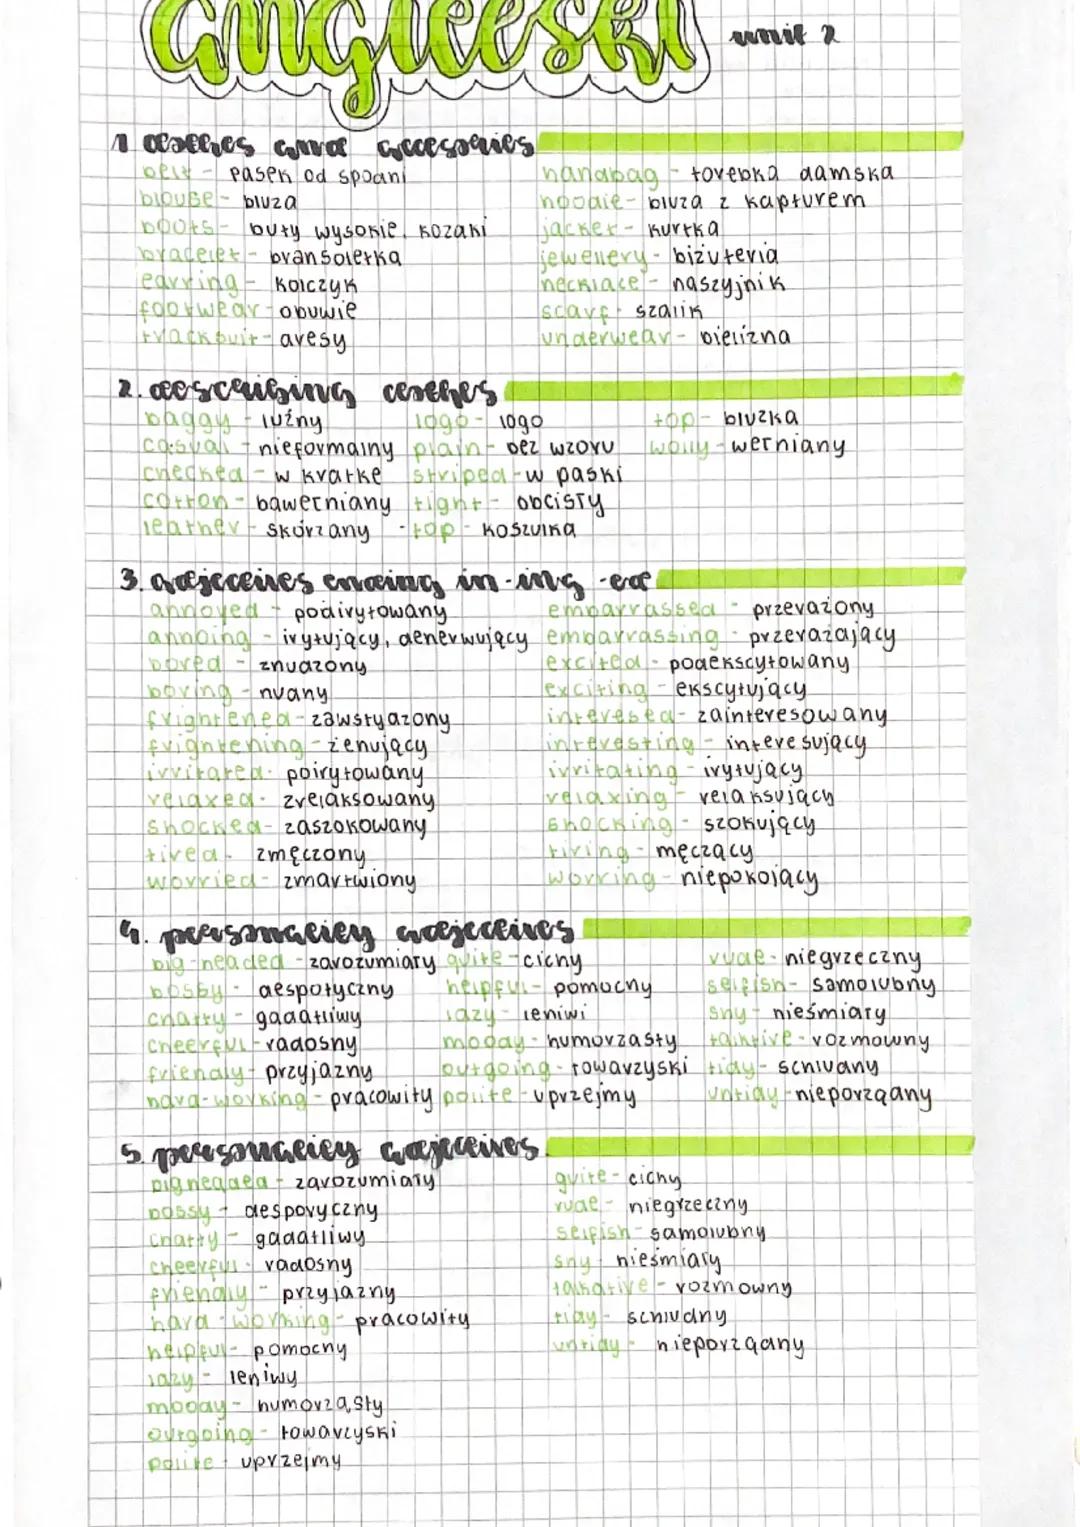 angielski unit 2
1 clothes and accesories
belt - pasek od spodni
blouse - bluza
boots - buty wysokie, kozaki
bracelet - bransoletka
earring - kolczyk
footwear - obuwie
tracksuit - dresy
handbag - torebka damska
hoodie - bluza z kapturem
jacket - kurtka
jewellery - biżuteria
necklace - naszyjnik
scarf - szalik
underwear - bielizna
2. describing clothes
baggy - luźny
casual - nieformalny
checked - w kratke
cotton - bawełniany
leather - skórzany
logo - logo
plain - bez wzoru
striped - w paski
tight - obcisły
- top - koszulka
top - bluzka
wolly - wełniany
3. adjectives ending in -ing -ed
annoyed - podirytowany
annoing - irytujący, denerwujący
bored - znudzony
boring - nudny
frightened - zawstydzony
frightening - żenujący
irritated - poirytowany
relaxed - zrelaksowany
shocked - zaszokowany
tired - zmęczony
worried - zmartwiony
embarrassed - przerażony
embarrassing - przerażający
excited - podekscytowany
exciting - ekscytujący
interesed - zainteresowany
interesting - interesujący
irritating - irytujący
relaxing - relaksujący
shocking - szokujący
tiring - męczący
worring - niepokojący
4. personality adjectives
big-headed - zarozumiały
bossy - despotyczny
chatty - gadatliwy
cheerful - radosny
friendly - przyjazny
hard-working - pracowity
quite - cichy
helpful - pomocny
lazy - leniwi
moody - humorzasty
outgoing - towarzyski
polite - uprzejmy
rude - niegrzeczny
selfish - samolubny
shy - nieśmiały
talktive - rozmowny
tidy - schludny
untidy - nieporządny
5. personality adjectives
big headed - zarozumiały
bossy - desporyczny
chatty - gadatliwy
cheerful - radosny
friendly - przyjazny
hard - working - pracowity
helpful - pomocny
lazy - leniwy
moody - humorzasty
outgoing - towarzyski
polite - uprzejmy
quite - cichy
rude - niegrzeczny
selfish - samolubny
shy - nieśmiały
talkative - rozmowny
tidy - schludny
untidy - nieporządny